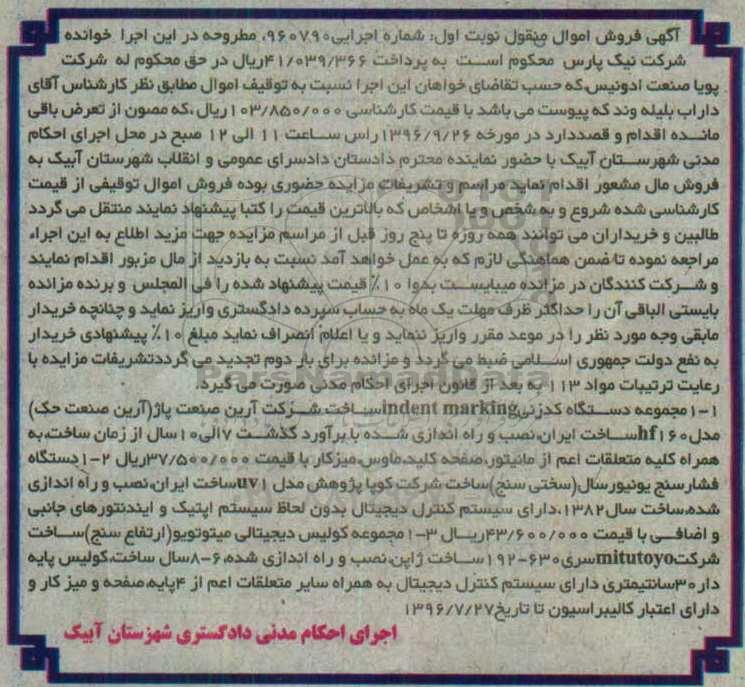 آگهی فروش اموال منقول نوبت اول: شماره اجرایی۹۶۰۷۹۰، مطروحه در این اجرا خوانده
شرکت نیک پارس محکوم است به پرداخت ۴۱/۰۳۹/۳۶۶ریال در حق محکوم له شرکت
پویا صنعت ادونیس،که حسب تقاضای خواهان این اجرا نسبت به توقیف اموال مطابق نظر کارشناس آقای
داراب بلیله وند که پیوست می باشد با قیمت کارشناسی ۱۰۳/۸۵۰/۰۰۰ریال ،که مصون از تعرض باقی
مانده اقدام و قصددارد در مورخه ۱۳۹۶/۹/۲۶راس ساعت ۱۱ الی ۱۲ صبح در محل اجرای احکام
مدنی شهرستان آبیک با حضور نماینده محترم دادستان دادسرای عمومی و انقلاب شهرستان آبیک به
فروش مال مشعور اقدام نماید مراسم و تشریفات مزایده حضوری بوده فروش اموال توقیفی از قیمت
کارشناسی شده شروع و به شخص و یا اشخاص که بالاترین قیمت را کتبا پیشنهاد نمایند منتقل می گردد
طالبین و خریداران می توانند همه روزه تا پنج روز قبل از مراسم مزایده جهت مزید اطلاع به این اجراء
مراجعه نموده تا ضمن هماهنگی لازم که به عمل خواهد آمد نسبت به بازدید از مال مزبور اقدام نمایند
و شرکت کنندگان در مزایده میبایست بدوا ۱۰٪ قیمت پیشنهاد شده را فی المجلس و برنده مزایده
بایستی الباقی آن را حداکثر ظرف مهلت یک ماه به حساب سپرده دادگستری واریز نماید و چنانچه خریدار
مابقی وجه مورد نظر را در موعد مقرر واریز ننماید و یا اعلام انصراف نماید مبلغ ۱۰٪ پیشنهادی خریدار
به نفع دولت جمهوری اسلامی ضبط می گردد و مزایده برای بار دوم تجدید می گرددتشریفات مزایده با
رعایت ترتیبات مواد ۱۱۳ به بعد از قانون اجرای احکام مدنی صورت می گیرد.
ParsNamadData
۱-۱مجموعه دستگاه کدزنیindent markingساخت شرکت آرین صنعت پاژ(آرین صنعت حک)
مدل۱۶۰hfساخت ایران،نصب و راه اندازی شده با برآورد گذشت ۷الی۱۰سال از زمان ساخت،به
همراه کلیه متعلقات اعم از مانیتور،صفحه کلید،ماوس،میزکار با قیمت ۳۷/۵۰۰/۰۰۰ریال ۲-۱دستگاه
فشارسنج یونیورسال(سختی سنج)ساخت شرکت کوپا پژوهش مدل u۷۱ساخت ایران،نصب و راه اندازی
شده،ساخت سال۱۳۸۲،دارای سیستم کنترل دیجیتال بدون لحاظ سیستم اپتیک و ایندنتورهای جانبی
و اضافی با قیمت ۴۳/۶۰۰/۰۰۰ریال ۳-۱مجموعه کولیس دیجیتالی میتوتویو(ارتفاع سنج)ساخت
شرکتmitutoyoسری۶۳۰-۱۹۲ساخت ژاپن،نصب و راه اندازی شده،۶-۸سال ساخت،کولیس پایه
دار۳۰سانتیمتری دارای سیستم کنترل دیجیتال به همراه سایر متعلقات اعم از ۴پایه،صفحه و میز کار و
دارای اعتبار کالیبراسیون تا تاریخ۱۳۹۶/۷/۲۷
اجرای احکام مدنی دادگستری شهرستان آبیک